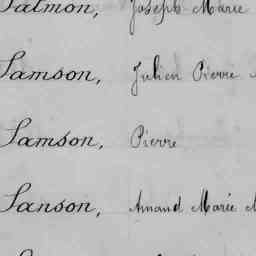 Salmon, Joseph Marie
Samson, Julien Pierre
Samson, Pierre
Sanson, Amand Marie